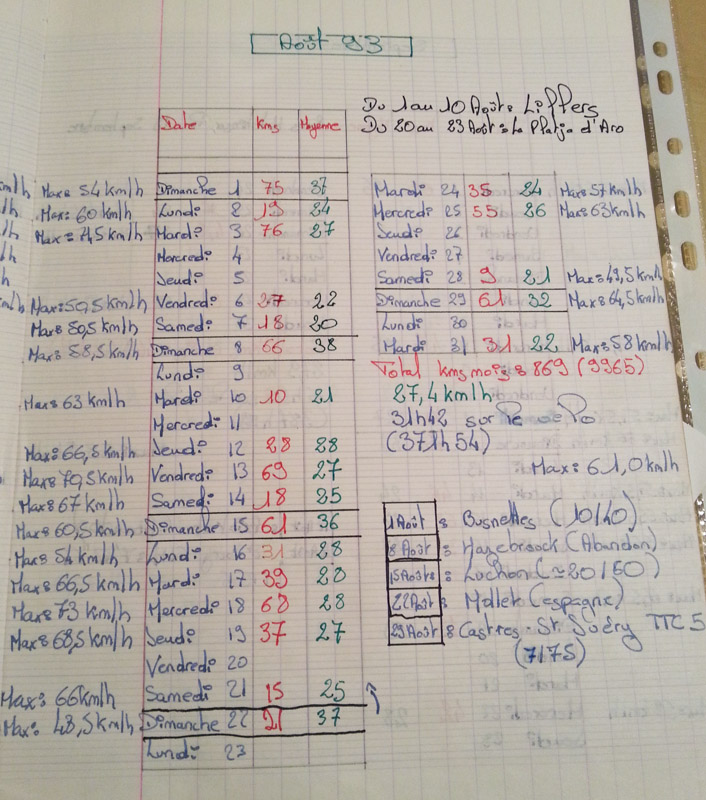 Août 93
Du 1 au 10 Août : Liffers
Du 20 au 23 Août : La Platja d'Aro
Date Kms Moyenne
Max : 54 km/h Dimanche 1 75 37
Max : 60 km/h Lundi 2 19 24
Mardi 3 76 27
Mercredi 4
Jeudi 5
Max : 50,5 km/h Vendredi 6 27 22
Max : 50,5 km/h Samedi 7 18 20
Max : 58,5 km/h Dimanche 8 66 38
Lundi 9
Max : 63 km/h Mardi 10 10 21
Mercredi 11
Max : 66,5 km/h Jeudi 12 28 28
Max : 70,5 km/h Vendredi 13 69 27
Max : 67 km/h Samedi 14 18 25
Max : 60,5 km/h Dimanche 15 61 36
Max : 54 km/h Lundi 16 31 28
Max : 66,5 km/h Mardi 17 39 28
Max : 73 km/h Mercredi 18 68 28
Max : 68,5 km/h Jeudi 19 37 27
Vendredi 20
Max : 66 km/h Samedi 21 15 25
Max : 48,5 km/h Dimanche 22 21 37
Lundi 23
Mardi 24 35 24 Max : 57 km/h
Mercredi 25 55 26 Max : 63 km/h
Jeudi 26
Vendredi 27
Samedi 28 9 21 Max : 49,5 km/h
Dimanche 29 61 32 Max : 64,5 km/h
Lundi 30
Mardi 31 31 22 Max : 58 km/h
Total kms mois : 869 (9965)
27,4 km/h
31h42 sur le vélo
(371h54)
Max : 61,0 km/h
1 Août : Busnettes (10/40)
8 Août : Hazebrouck (Abandon)
15 Août : Luchon (≈20/50)
22 Août : Mollet (espagne)
29 Août : Castres - St Suéry TTC 5
(7/75)